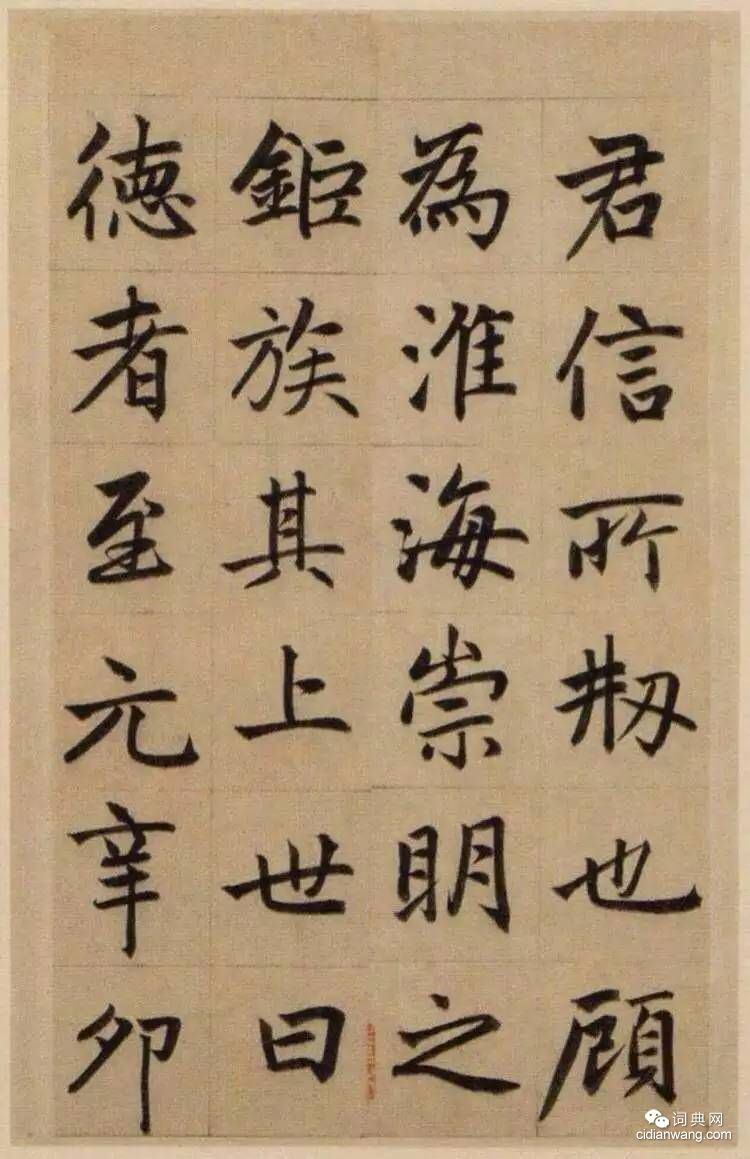 君信所刱也顧
為淮海崇明之
鉅族其上世曰
德者至元辛卯
词典网
cidianwang.com